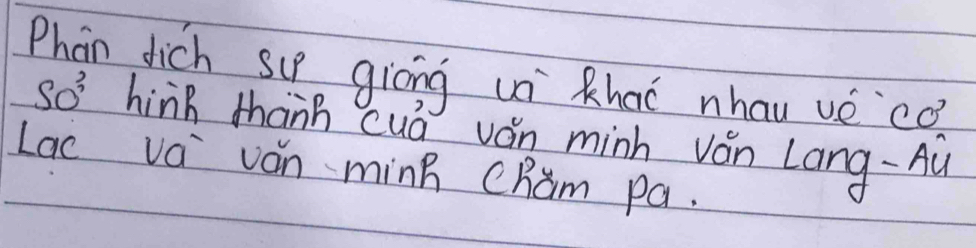 Phân tích sự giống và khác nhau về cơ
sở hình thành của văn minh Văn Lang - Âu
Lạc và văn minh Chăm pa.